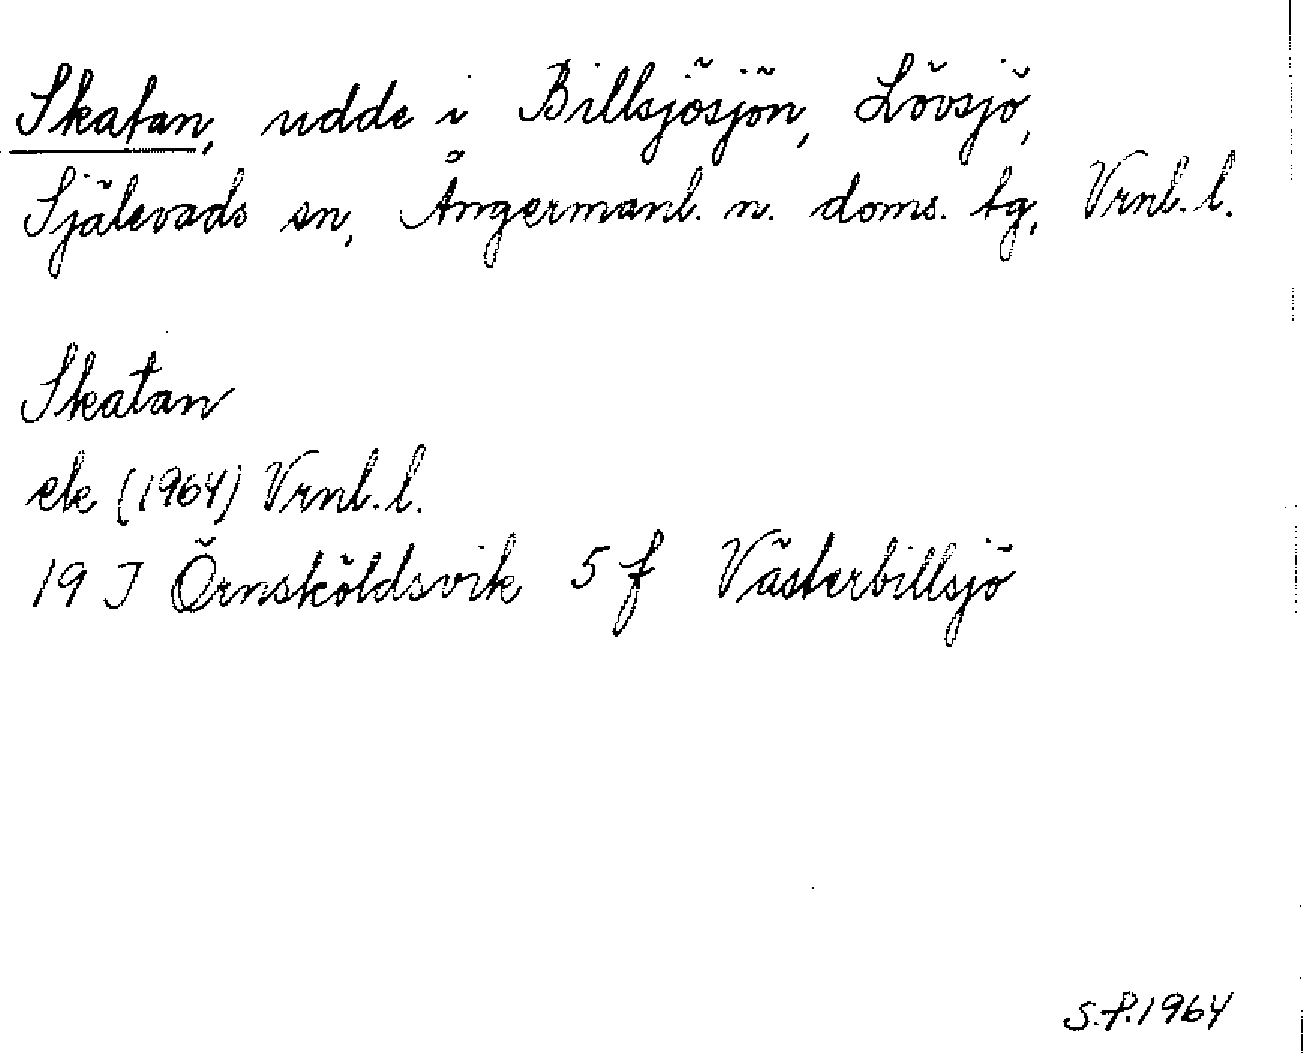 Skatan, udde i Billsjösjön, Lövsjö,
Själevads sn, Ångermanl. n. doms. tg, Vrnl. l.
Skatan
ek (1964) Vrnl. l.
19 J Örnsköldsvik 5 f Västerbillsjö
S.P. 1964